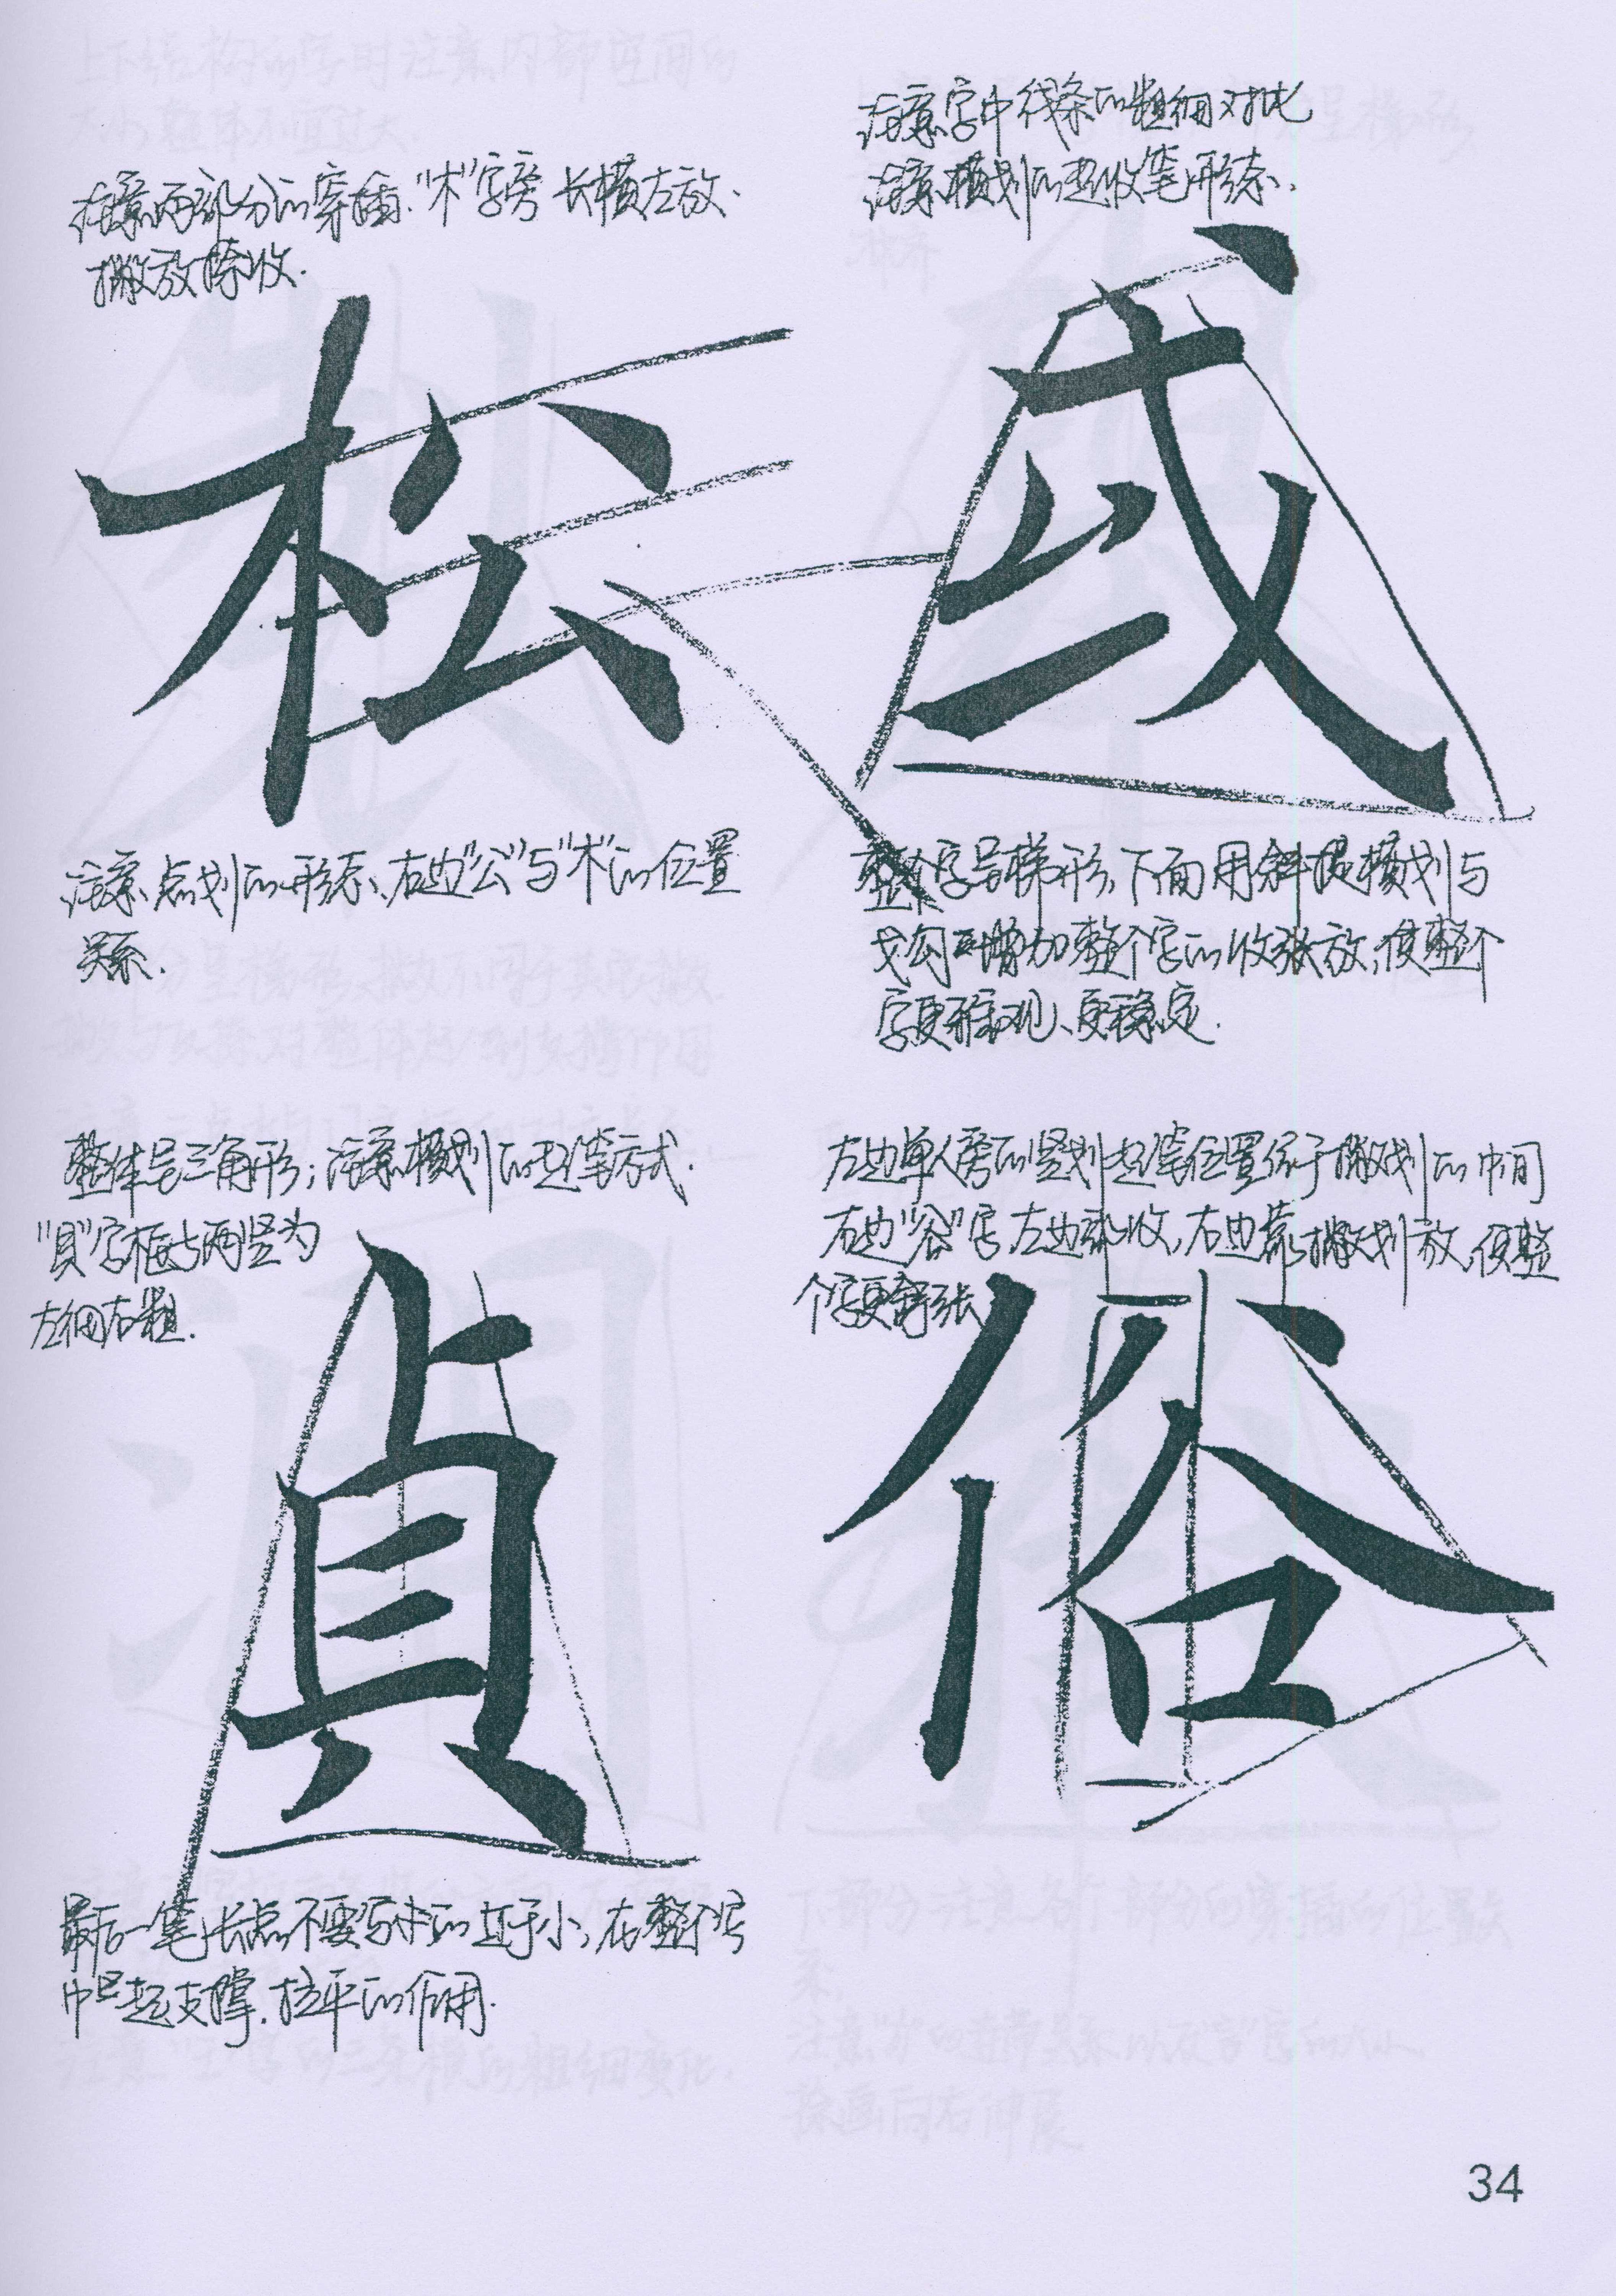 注意两部分的穿插."木"字旁长横左放、
撇放捺收.
松
注意点划的形态、右边"公"与"木"的位置
关系.
注意字中线条的粗细对比
注意横划的起收笔形态.
或
整个字呈梯形,下面用斜提横划与
戈勾增加整个字的收张放,使整个
字更雅观、更稳定.
整体呈三角形;注意横划的起笔方式.
"貝"字框与两竖为
左细右粗.
貞
最后一笔长点不要写的过于小,在整个字
中起支撑.拉平的作用.
左边单人旁的竖划起笔位置位于撇划的中间
右边"谷"字左边收,右边靠撇划放,使整
个字更舒张
俗
34